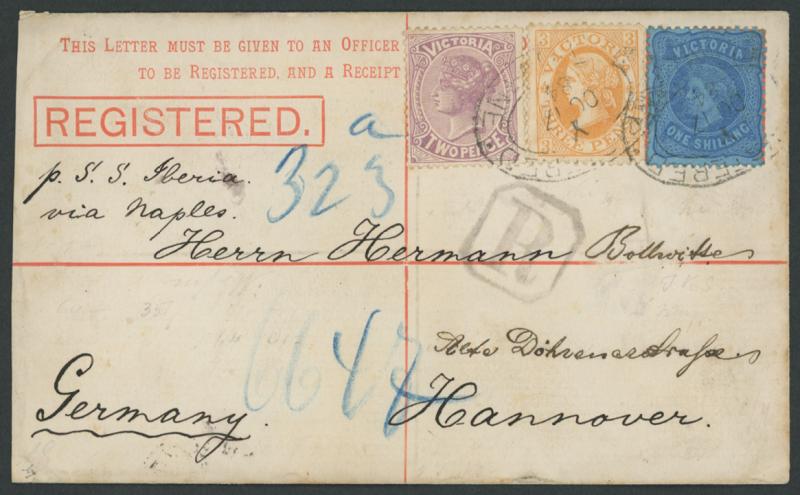 THIS LETTER MUST BE GIVEN TO AN OFFICER
TO BE REGISTERED, AND A RECEIPT
REGISTERED.
VICTORIA
TWO PENCE
3 3
VICTORIA
PEN
VICTORIA
ONE SHILLING
a
323
p. S. S. Iberia.
via Naples.
R
Herrn Hermann Bollwitte
6647
Alte Döhrenerstraße
Germany.
Hannover.